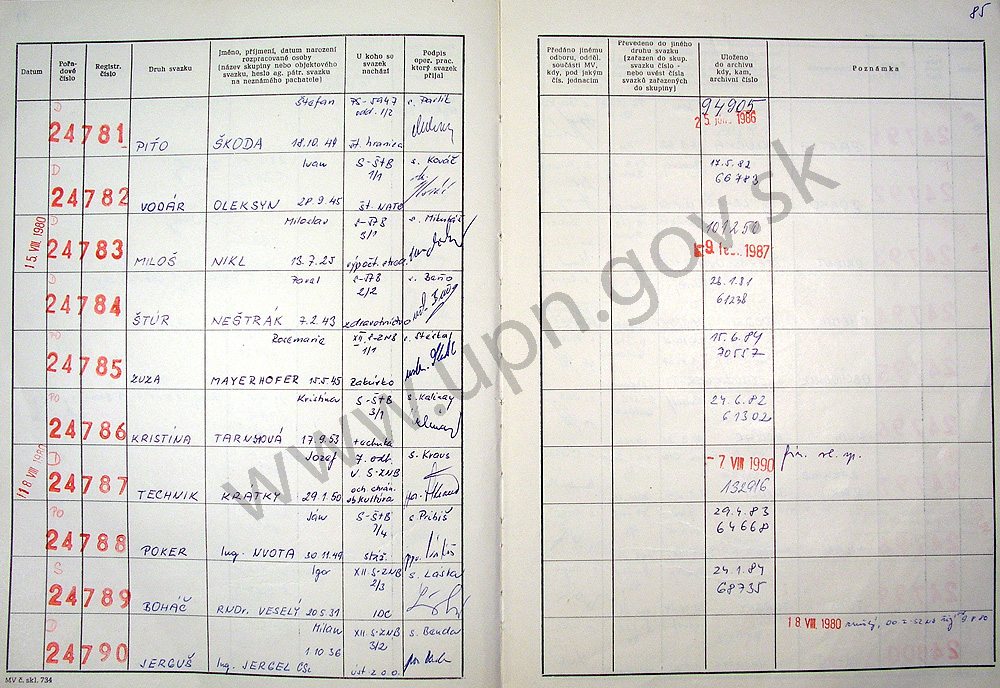 85
Datum
Pořadové číslo
Registr. číslo
Druh svazku
Jméno, příjmení, datum narození
rozpracované osoby
(název skupiny nebo objektového
svazku, heslo ag. pátr. svazku
na neznámého pachatele)
U koho se
svazek
nachází
Podpis
oper. prac.
který svazek
přijal
Předáno jinému
odboru, odděl.
součásti MV,
kdy, pod jakým
čís. jednacím
Převedeno do jiného
druhu svazku
(zařazen do skup.
svazku číslo -
nebo uvést čísla
svazků zařazených
do skupiny)
Uloženo
do archivu
kdy, kam,
archivní číslo
Poznámka
D
24781
PIŤO
Štefan
ŠKODA 18.10.49
PS-5947
odd. 1/2
št. hranica
s. Pavlík
94905
1986
D
24782
VODÁR
Ivan
OLEKSYN 28.9.45
S-ŠtB
1/1
št. NATO
s. Kováč
17.5.82
66783
15. VIII. 1980
D
24783
MILOŠ
Miloslav
NIKL 13.7.25
S-ŠTB
3/1
výpočt. stred.
s. Mikuláš
101250
1987
D
24784
ŠTÚR
Pavol
NEŠTRÁK 7.2.43
S-ŠTB
2/2
zdravotníctvo
s. Baňo
28.1.81
61238
PO
24785
ZUZA
Rosemarie
MAYERHOFER 15.5.45
XII. S-ZNB
1/1
Rakúsko
15.6.84
70557
PO
24786
KRISTÍNA
Kristina
17.9.53
S-ŠtB
3/1
technika
s. Kalinay
24.6.82
61302
18 VIII. 1980
D
24787
TECHNIK
Jozef
KRÁTKY 29.1.50
7. odb.
V. S-ZNB
och. chrán.
ob. kultúra
s. Kraus
-7 VIII 1990
132916
PO
24788
POKER
Ján
Ing. NVOTA 30.11.49
S-ŠtB
s. Pribiš
29.4.83
64668
S
24789
BOHÁČ
Igor
RNDr. VESELÝ 20.5.31
XII. S-ZNB
2/3
IDC
24.1.84
68735
D
24790
JERGUŠ
Milan
1.10.36
Ing. JERGEL CSc
XII. S-ZNB
3/2
s. Bandor
18. VIII. 1980
MV č. skl. 734
www.upn.gov.sk